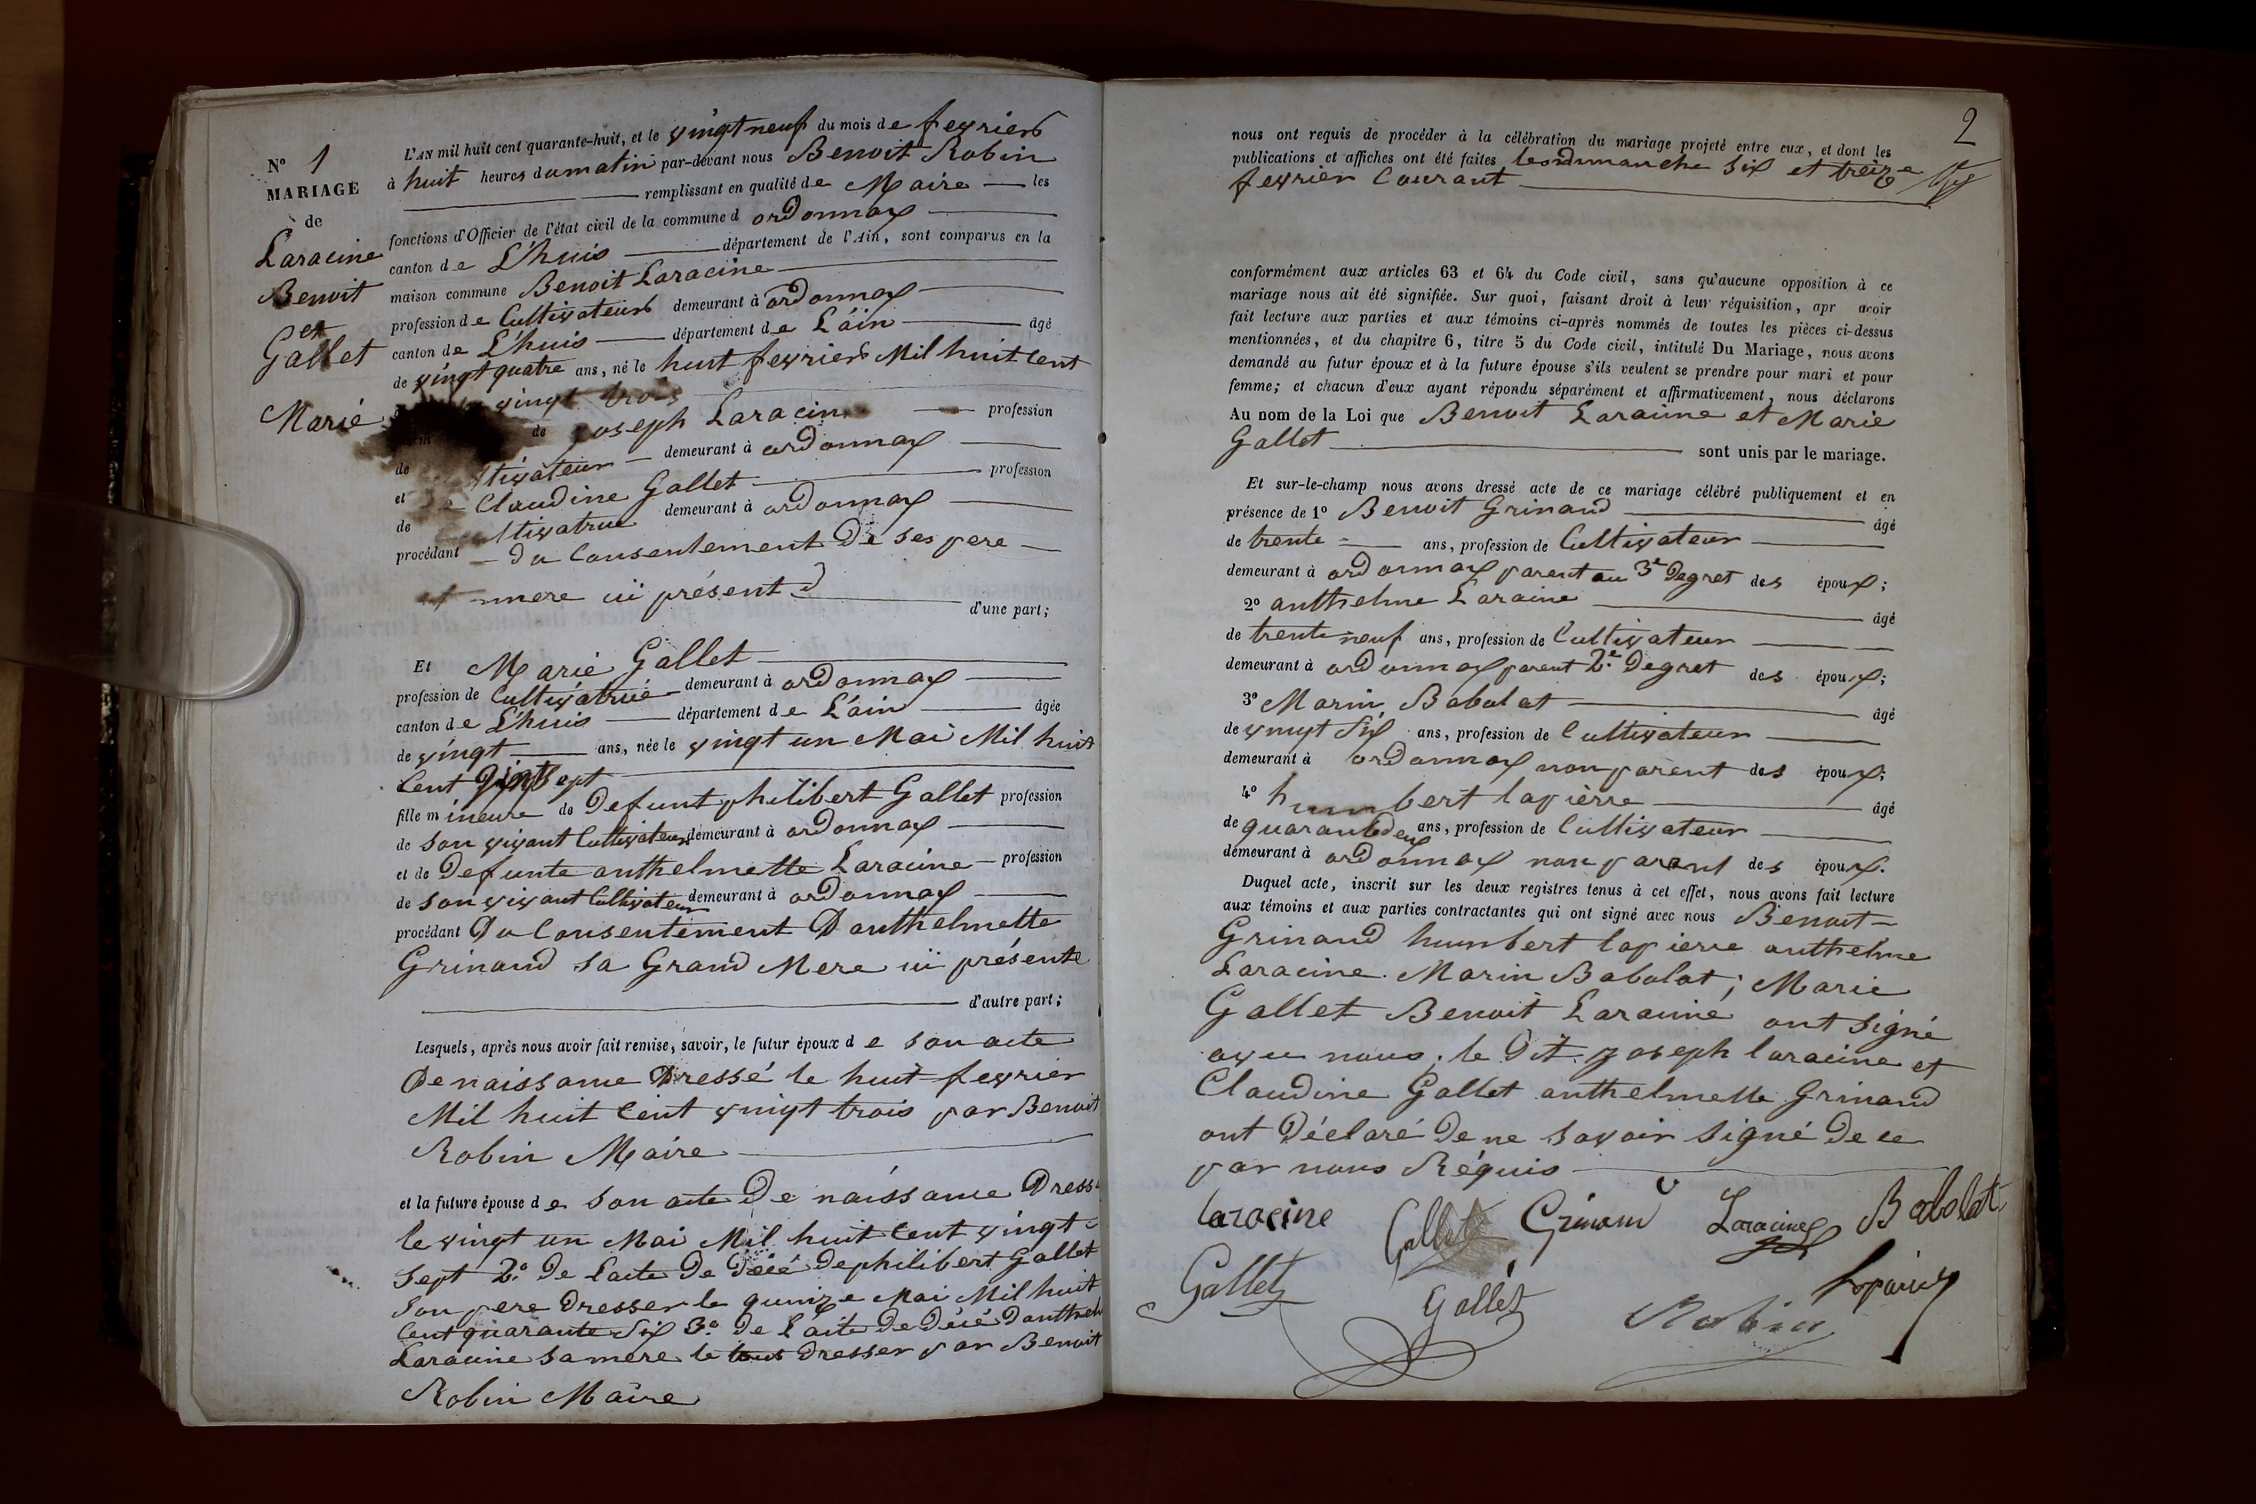 N° 1
MARIAGE
de
Laracine
Benoit
et
Gallet
Marie
L'AN mil huit cent quarante-huit, et le vingt neuf du mois de fevrier
à huit heures du matin par-devant nous Benoit Robin
remplissant en qualité de Maire les
fonctions d'Officier de l'état civil de la commune d ordonnax
canton de L'huis département de l'Ain, sont comparus en la
maison commune Benoit Laracine
profession de Cultivateur demeurant à ordonnax
canton de L'huis département de L'ain âgé
de vingt quatre ans, né le huit fevrier Mil huit cent
vingt trois
de joseph Laracine profession
de tivateur demeurant à ordonnax
et de Claudine Gallet profession
de cultivatrice demeurant à ordonnax
procédant du Consentement De ses pere
et mere ici présent
d'une part;
Et Marie Gallet
profession de Cultivatrice demeurant à ordonnax
canton de L'huis département de L'ain âgée
de vingt ans, née le vingt un Mai Mil huit
Cent vingt sept
fille mineure de Defunt philibert Gallet profession
de son vivant Cultivateur demeurant à ordonnax
et de Defunte anthelmette Laracine profession
de son vivant Cultivateur demeurant à ordonnax
procédant Du Consentement D anthelmette
Grinand sa Grand Mere ici présente
d'autre part;
Lesquels, après nous avoir fait remise, savoir, le futur époux de son acte
De naissance Dressé le huit fevrier
Mil huit Cent vingt trois par Benoit
Robin Maire
et la future épouse de son acte De naissance Dressé
le vingt un Mai Mil huit Cent vingt
sept 2.° De L'acte De Décé De philibert Gallet
son pere Dresser le quinze Mai Mil huit
Cent quarante six 3.° De L'acte De Décé D anthel
Laracine sa mere le tout Dresser par Benoit
Robin Maire
2
nous ont requis de procéder à la célébration du mariage projeté entre eux, et dont les
publications et affiches ont été faites les dimanche six et treize
fevrier Courant
conformément aux articles 63 et 64 du Code civil, sans qu'aucune opposition à ce
mariage nous ait été signifiée. Sur quoi, faisant droit à leur réquisition, apr avoir
fait lecture aux parties et aux témoins ci-après nommés de toutes les pièces ci-dessus
mentionnées, et du chapitre 6, titre 5 du Code civil, intitulé Du Mariage, nous avons
demandé au futur époux et à la future épouse s'ils veulent se prendre pour mari et pour
femme; et chacun d'eux ayant répondu séparément et affirmativement, nous déclarons
Au nom de la Loi que Benoit Laracine et Marie
Gallet sont unis par le mariage.
Et sur-le-champ nous avons dressé acte de ce mariage célébré publiquement et en
présence de 1° Benoit Grinand âgé
de trente ans, profession de Cultivateur
demeurant à ordonnax parent au 3e Degret des époux;
2° anthelme Laracine âgé
de trente neuf ans, profession de Cultivateur
demeurant à ordonnax parent 2.e Degret des époux;
3° Marin Babolat âgé
de vingt Six ans, profession de Cultivateur
demeurant à ordonnax non parent des époux;
4° humbert lapierre âgé
de quarante deux ans, profession de Cultivateur
demeurant à ordonnax non parant des époux.
Duquel acte, inscrit sur les deux registres tenus à cet effet, nous avons fait lecture
aux témoins et aux parties contractantes qui ont signé avec nous Benoit
Grinand humbert lapierre anthelme
Laracine Marin Babolat; Marie
Gallet Benoit Laracine ont signé
avec nous; le Dit joseph laracine et
Claudine Gallet anthelmette Grinand
ont Déclaré De ne savoir signé De ce
par nous Réquis
laracine Gallet Grinand Laracine Babolat
Gallet Gallet Robin lapierre